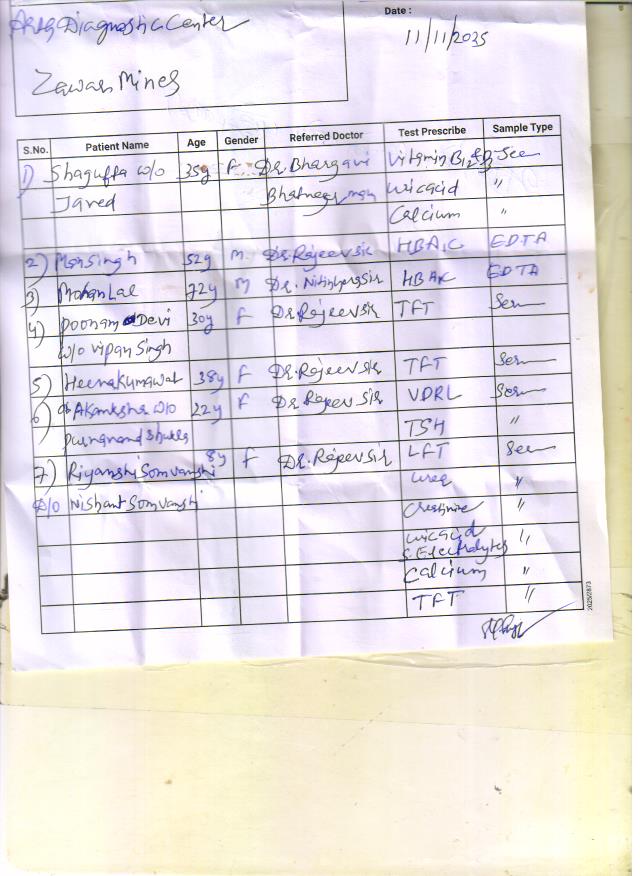 Diagnostic Center
Date :
11/11/2025
Zawar Mines
S.No. Patient Name Age Gender Referred Doctor Test Prescribe Sample Type
1) Shaguffa w/o 35y F Dr. Bhargavi Vitamin B12 & D3
Javed Bhatnegar mam uricacid "
Calcium "
2) Mansingh 52y M. Dr. Rajeev sir HBA1C EDTA
3) Mohan Lal 72y M Dr. HBA1C EDTA
4) Poonam Devi 30y F Dr. Rajeev sir TFT Serum
w/o Vipan Singh
5) Heena Kumawat 38y F Dr. Rajeev sir TFT Serum
6) Akanksha w/o 22y F Dr. Rajeev Sir VDRL Serum
TSH "
7) Riyanshi Somvanshi 8y F Dr. Rajeev sir LFT
D/o Nishant Somvanshi urea "
"
uricacid "
S. Electrolytes
Calcium "
TFT "
2025/2873